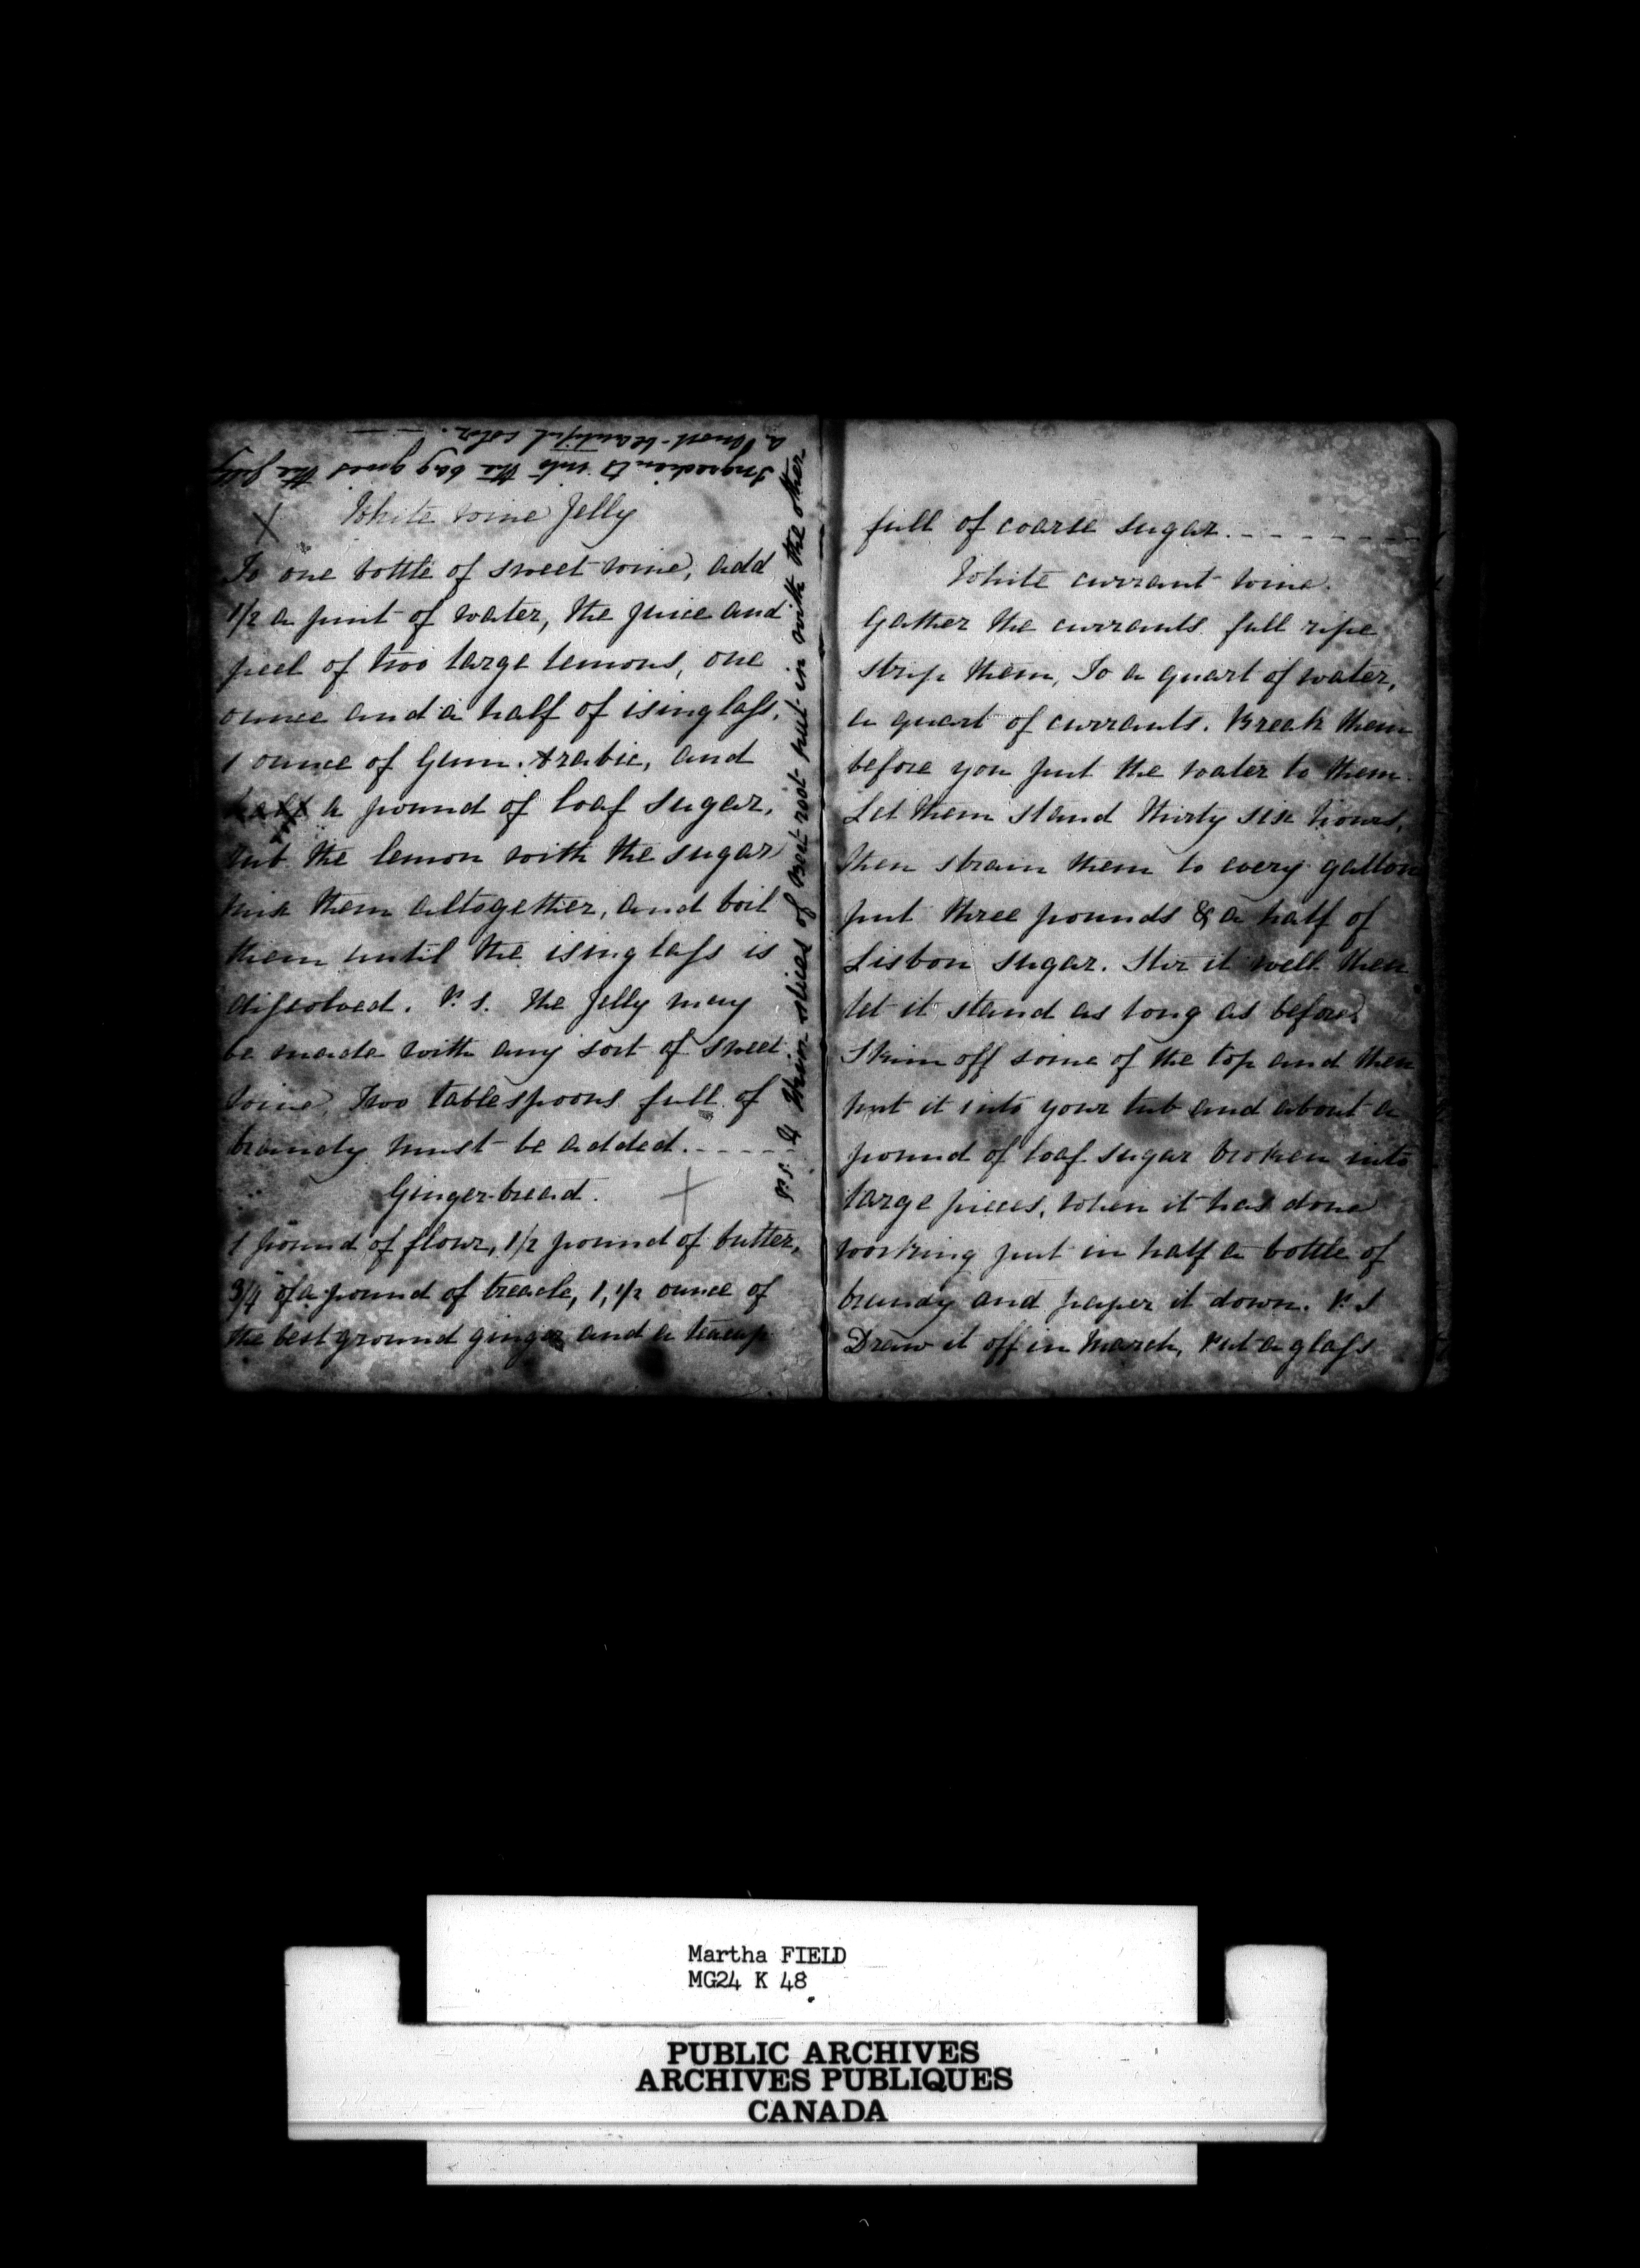 White wine Jelly
To one bottle of sweet wine, add
1/2 a pint of water, the juice and
peel of two large lemons, one
ounce and a half of isinglaſs,
1 ounce of Gum Arabic, and
half a pound of loaf sugar,
rub the lemon with the sugar
mix them altogether, and boil
them until the isinglaſs is
diſsolved. P. S. The Jelly may
be made with any sort of sweet
wine. Two tablespoons full of
brandy must be added.
P.S. 4 thin slices of Beet root put in with the other
Ingredients into the bag gives the Jelly
a most beautiful color.
Ginger-bread.
1 pound of flour, 1/2 pound of butter,
3/4 of a pound of treacle, 1, 1/2 ounce of
the best ground ginger and a teacup
full of coarse sugar.
White currant wine.
Gather the currants full ripe
strip them, To a quart of water,
a quart of currants. Break them
before you put the water to them.
Let them stand thirty six hours,
then strain them to every gallon
put three pounds & a half of
Lisbon sugar. Stir it well then
let it stand as long as before.
Skim off some of the top and then
put it into your tub and about a
pound of loaf sugar broken into
large pieces, when it has done
working put in half a bottle of
brandy and paper it down. P. S
Draw it off in March, Put a glaſs
Martha FIELD
MG24 K 48
PUBLIC ARCHIVES
ARCHIVES PUBLIQUES
CANADA